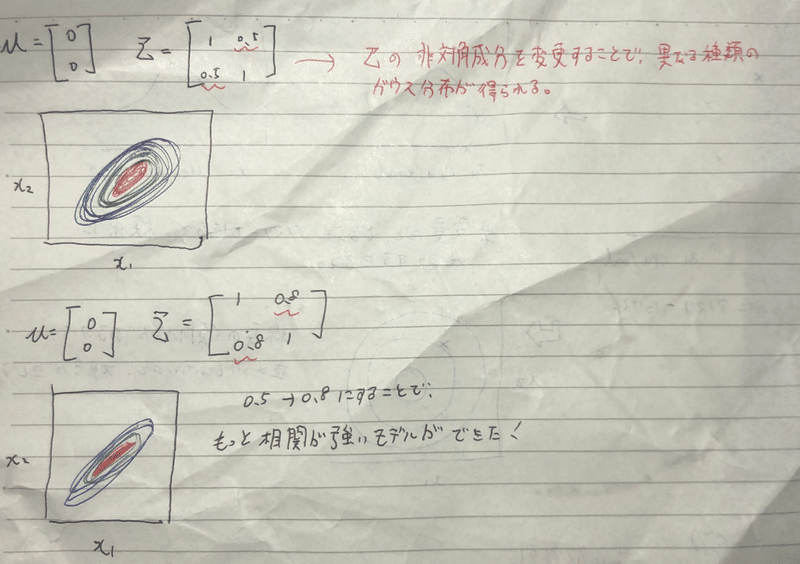 μ = [0 0] Σ = [1 0.5 0.5 1] → Σの非対角成分を変更することで、異なる種類の
ガウス分布が得られる。
x₂
x₁
μ = [0 0] Σ = [1 0.8 0.8 1]
0.5 → 0.8 にすることで、
もっと相関が強いモデルができた!
x₂
x₁